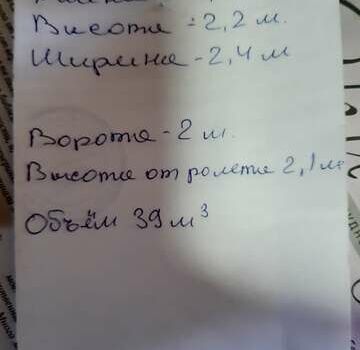 Высота - 2,2 м.
Ширина - 2,4 м
Ворота - 2 м.
Высота от ролета 2,1 м
Объём 39 м³